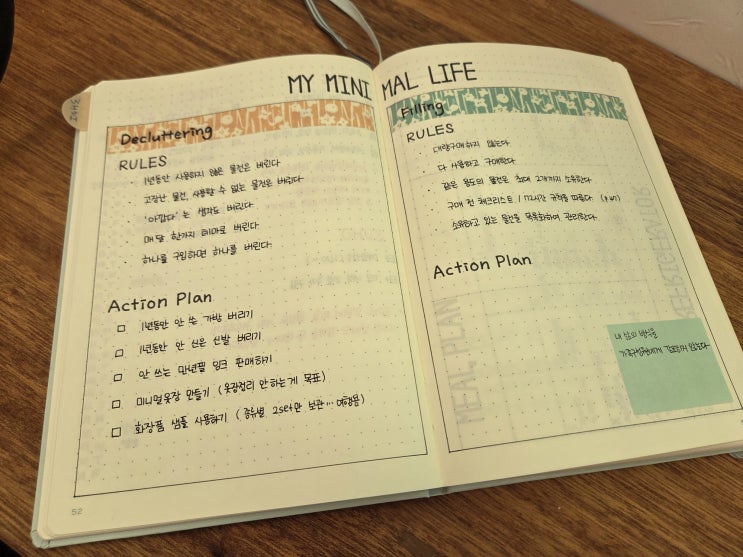 MY MINIMAL LIFE
Decluttering
RULES
· 1년동안 사용하지 않은 물건은 버린다
· 고장난 물건, 사용할 수 없는 물건은 버린다
· '아깝다' 는 생각도 버린다
· 매달 한가지 테마로 버린다
· 하나를 구입하면 하나를 버린다
Action Plan
□ 1년동안 안 쓴 가방 버리기
□ 1년동안 안 신은 신발 버리기
□ 안 쓰는 만년필 잉크 판매하기
□ 미니멀옷장 만들기 (옷장정리 안하는게 목표)
□ 화장품 샘플 사용하기 (종류별 2set만 보관... 여행용)
52
Filling
RULES
· 대량구매하지 않는다
· 다 사용하고 구매한다
· 같은 용도의 물건은 최대 2개까지 소유한다
· 구매 전 체크리스트 / 72시간 규칙을 따른다
· 소유하고 있는 물건을 목록화하여 관리한다
Action Plan
내 삶의 방식을
가족구성원에게 강요하지 않는다
MEAL PLAN